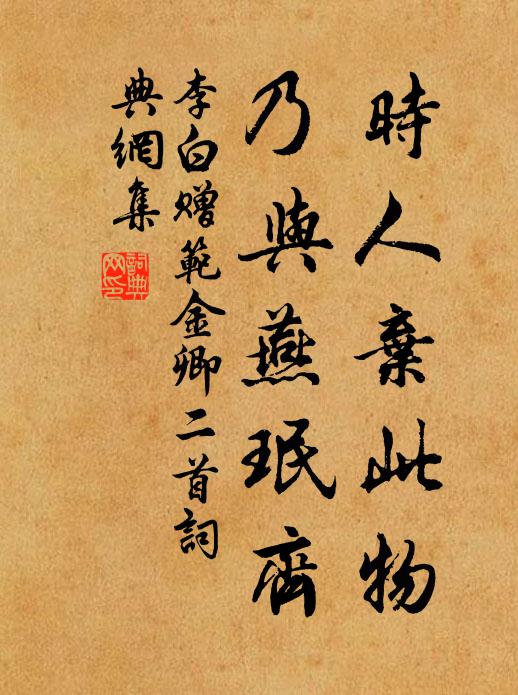 時人棄此物
乃與燕珉齊
李白贈範金卿二首詞
典網集
詞典网印